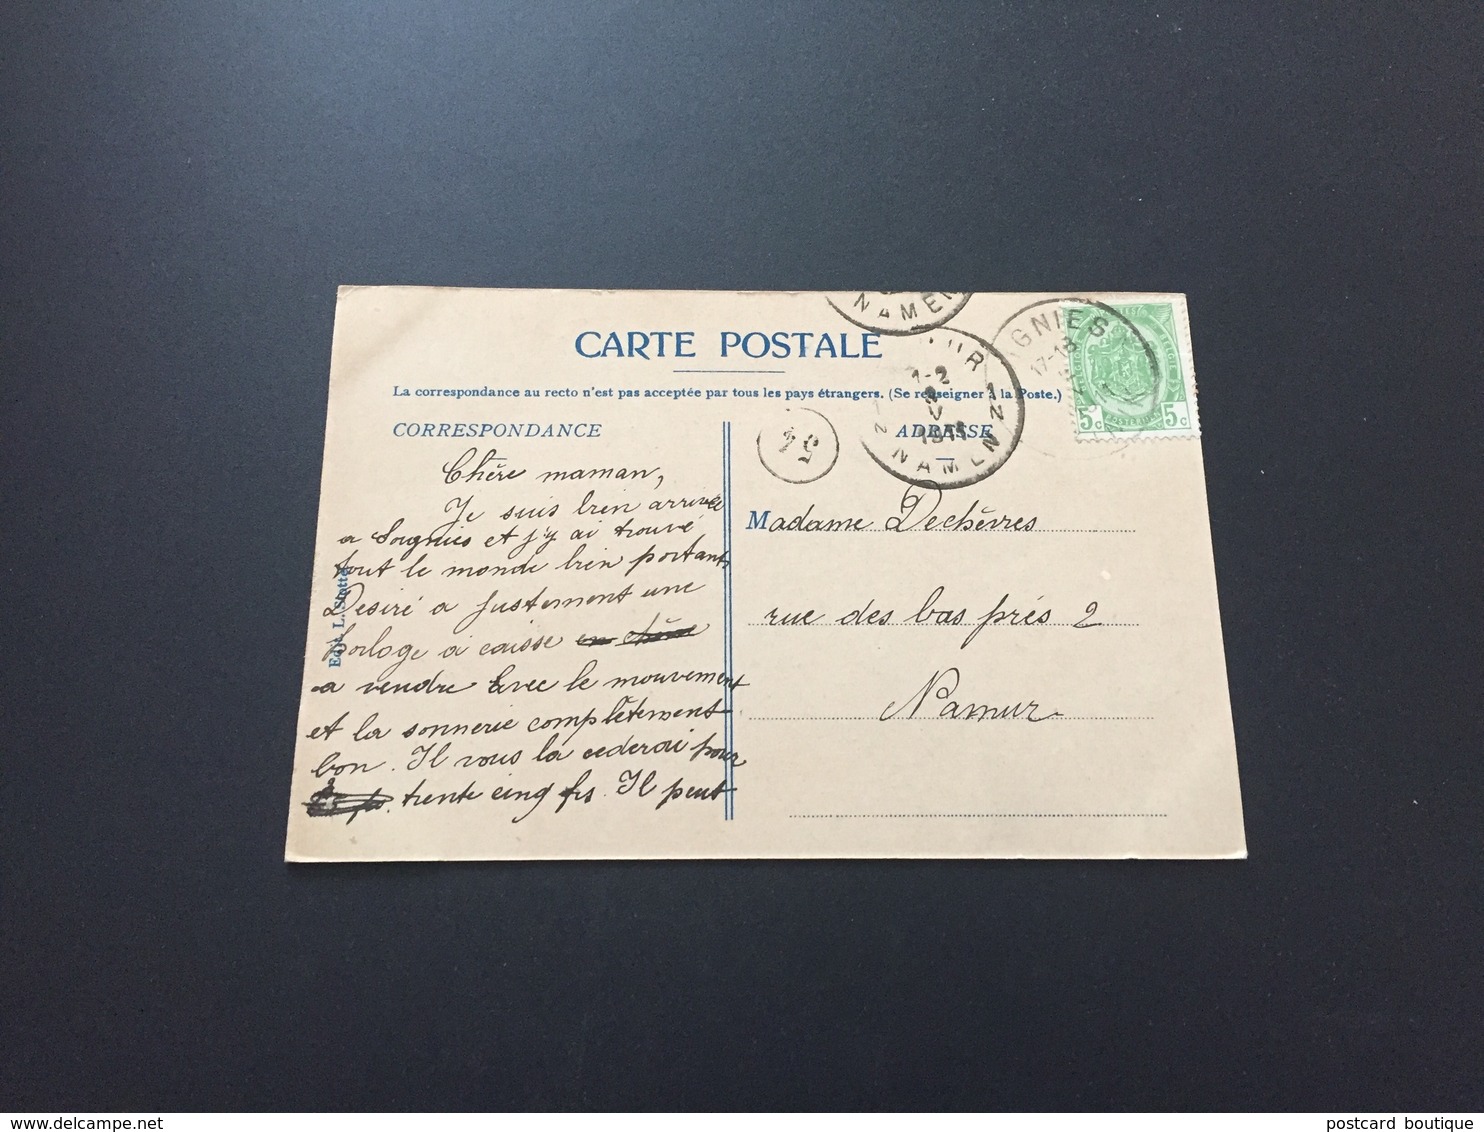 NAMEN
CARTE POSTALE
La correspondance au recto n'est pas acceptée par tous les pays étrangers. (Se renseigner à la Poste.)
CORRESPONDANCE
ADRESSE
GNIES
17-18
1-2
NAMEN
54
5c 5c
Chère maman,
Je suis bien arrivée
a Soignies et j'y ai trouvé
tout le monde bien portant
Desiré a justement une
horloge à caisse
a vendre avec le mouvement
et la sonnerie complètement
bon. Il vous la cederai pour
trente cinq frs. Il peut
Madame Dechèvres
rue des bas prés 2
Namur
delcampe.net
postcard boutique